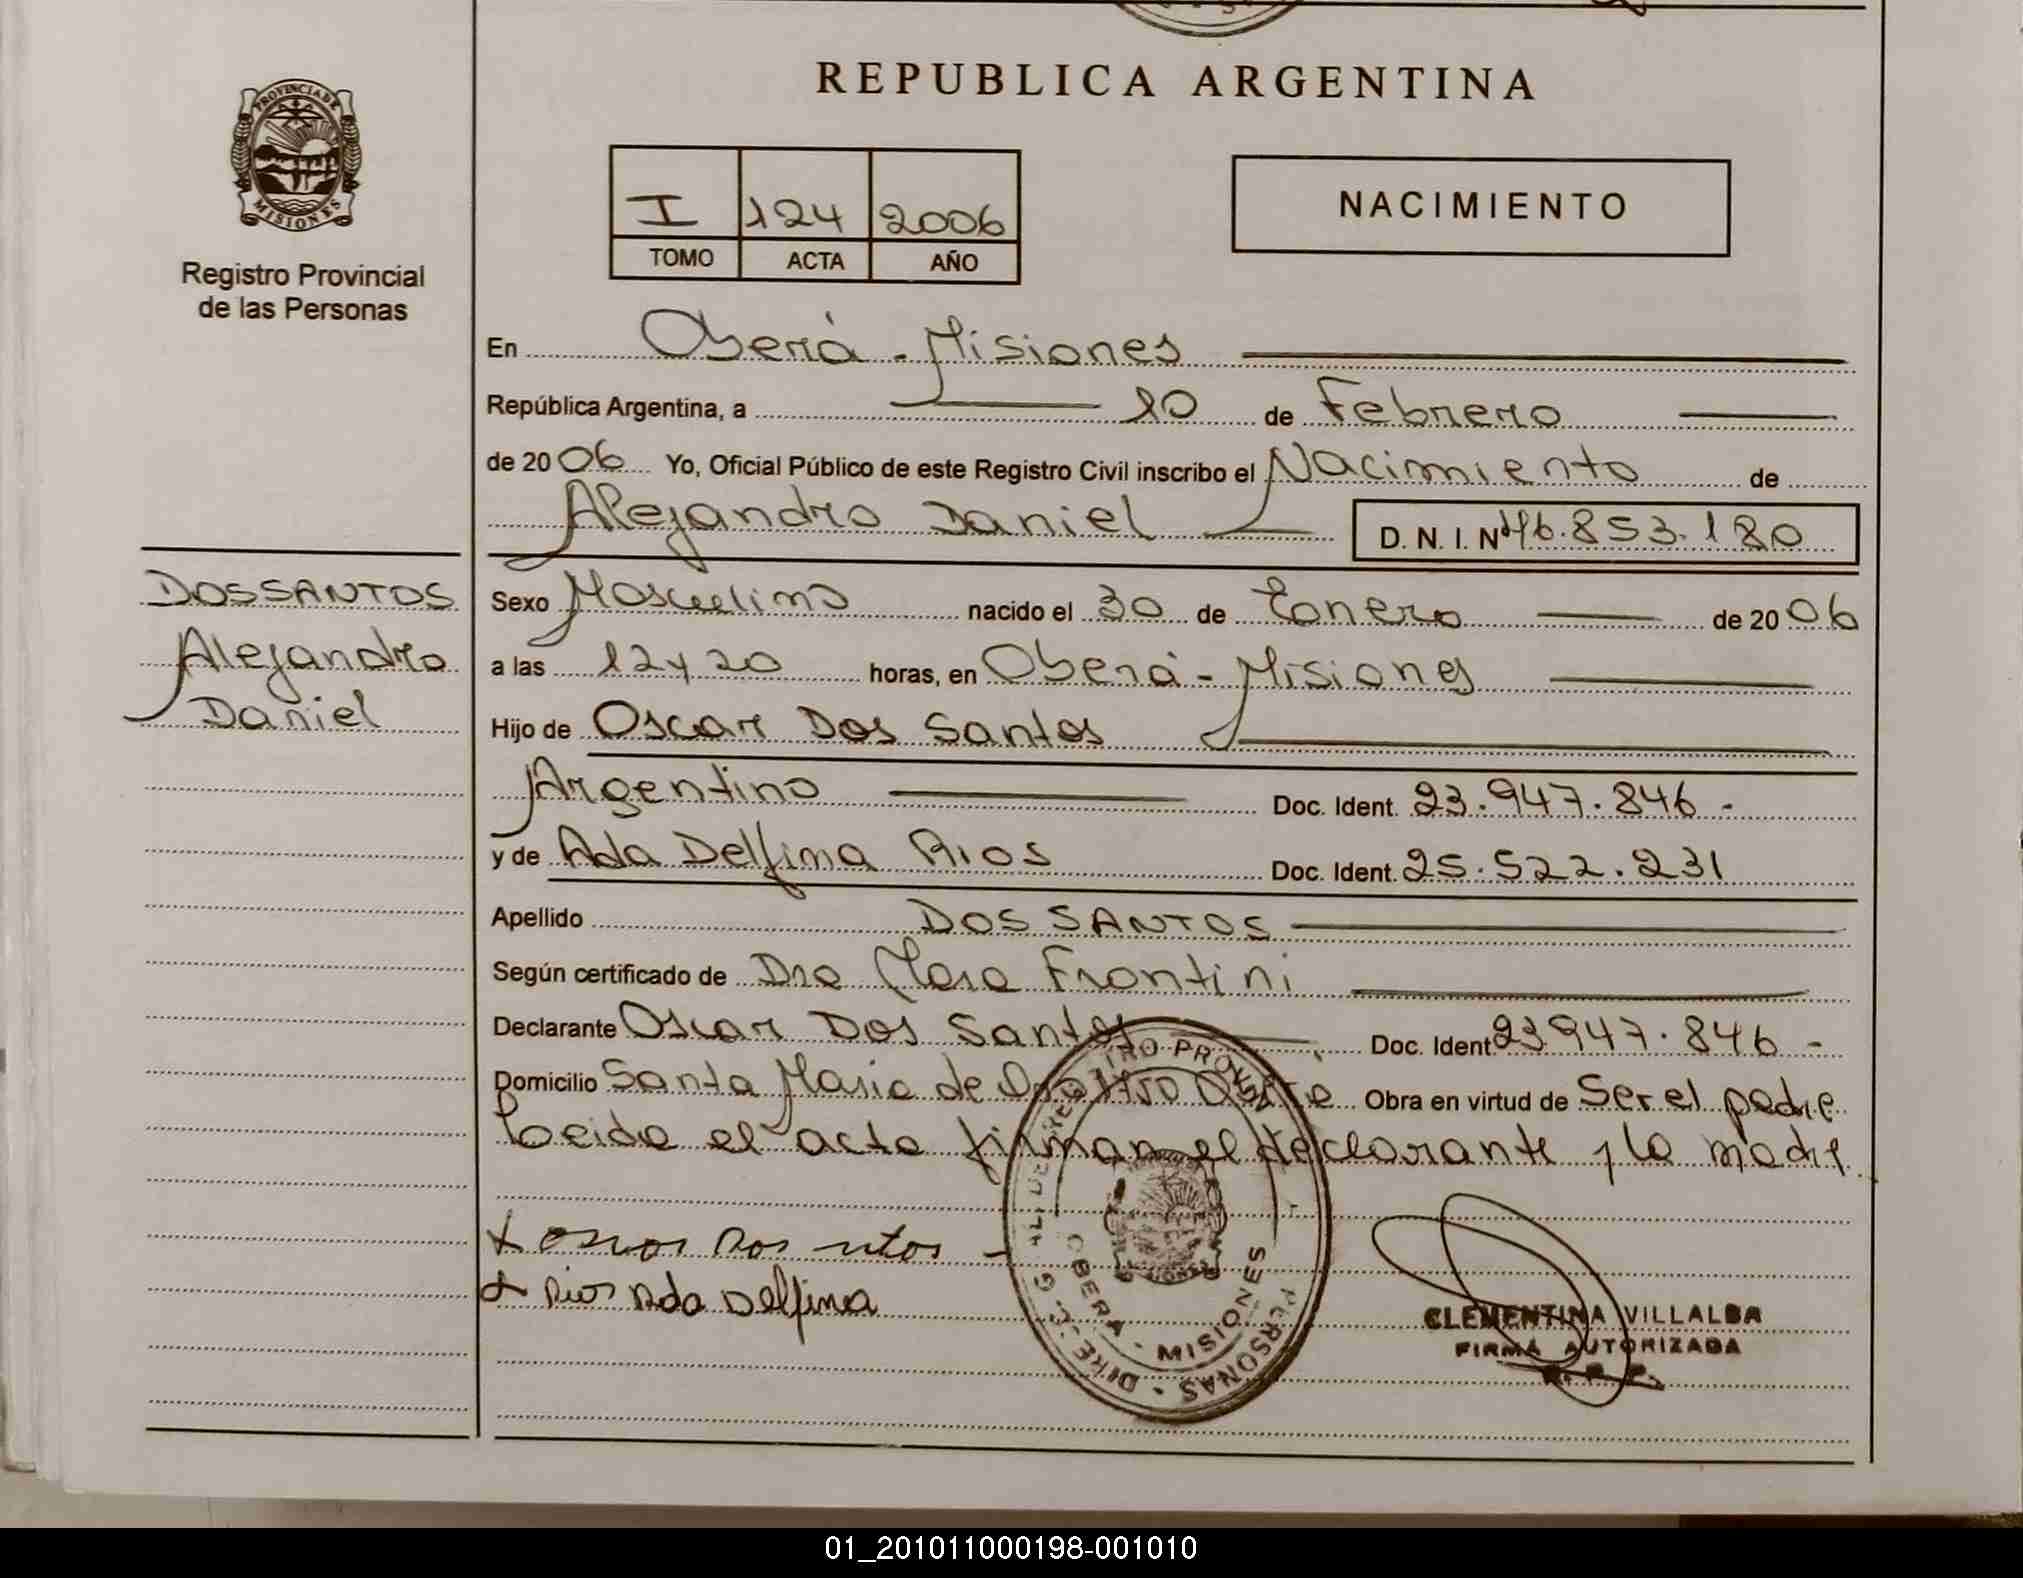 REPUBLICA ARGENTINA
PROVINCIA DE
MISIONES
Registro Provincial
de las Personas
I 124 2006
TOMO ACTA AÑO
NACIMIENTO
En Oberá - Misiones
República Argentina, a 10 de Febrero
de 2006 Yo, Oficial Público de este Registro Civil inscribo el Nacimiento de
Alejandro Daniel D. N. I. Nº 46.853.180
DOSSANTOS
Alejandro
Daniel
Sexo Masculino nacido el 30 de Enero de 2006
a las 12 y 20 horas, en Oberá - Misiones
Hijo de Oscar Dos Santos
Argentino Doc. Ident. 23.947.846 -
y de Ada Delfina Rios Doc. Ident. 25.522.231
Apellido DOS SANTOS
Según certificado de Dra Frontini
Declarante Oscar Dos Santos Doc. Ident 23947.846 -
Domicilio Santa Maria de Obra en virtud de Ser el padre
Leida el acta firman el declarante y la madre
Dos
Rios Ada Delfina
OBERA - MISIONES
PERSONAS
CLEMENTINA VILLALBA
FIRMA AUTORIZADA
R. P. P.
01_201011000198-001010